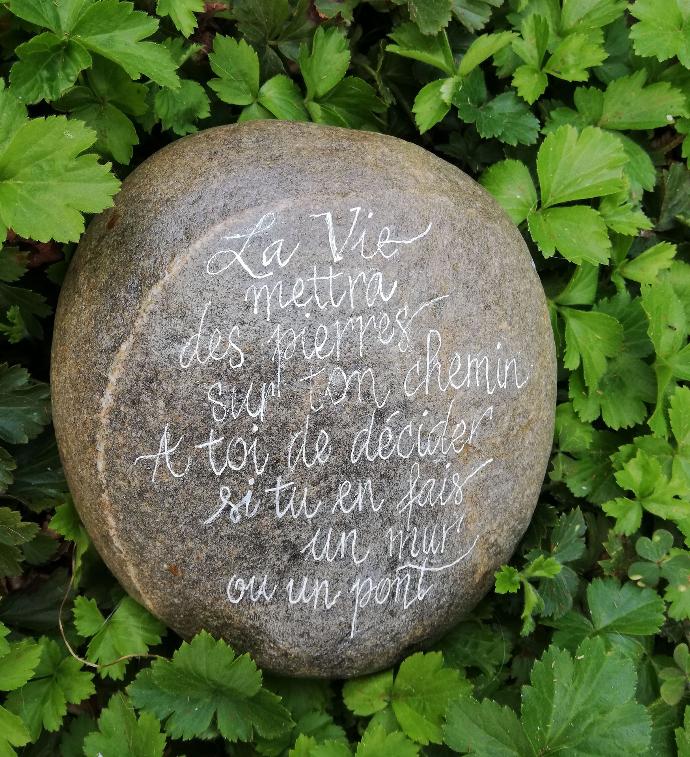 La Vie
mettra
des pierres
sur ton chemin
A toi de décider
si tu en fais
un mur
ou un pont